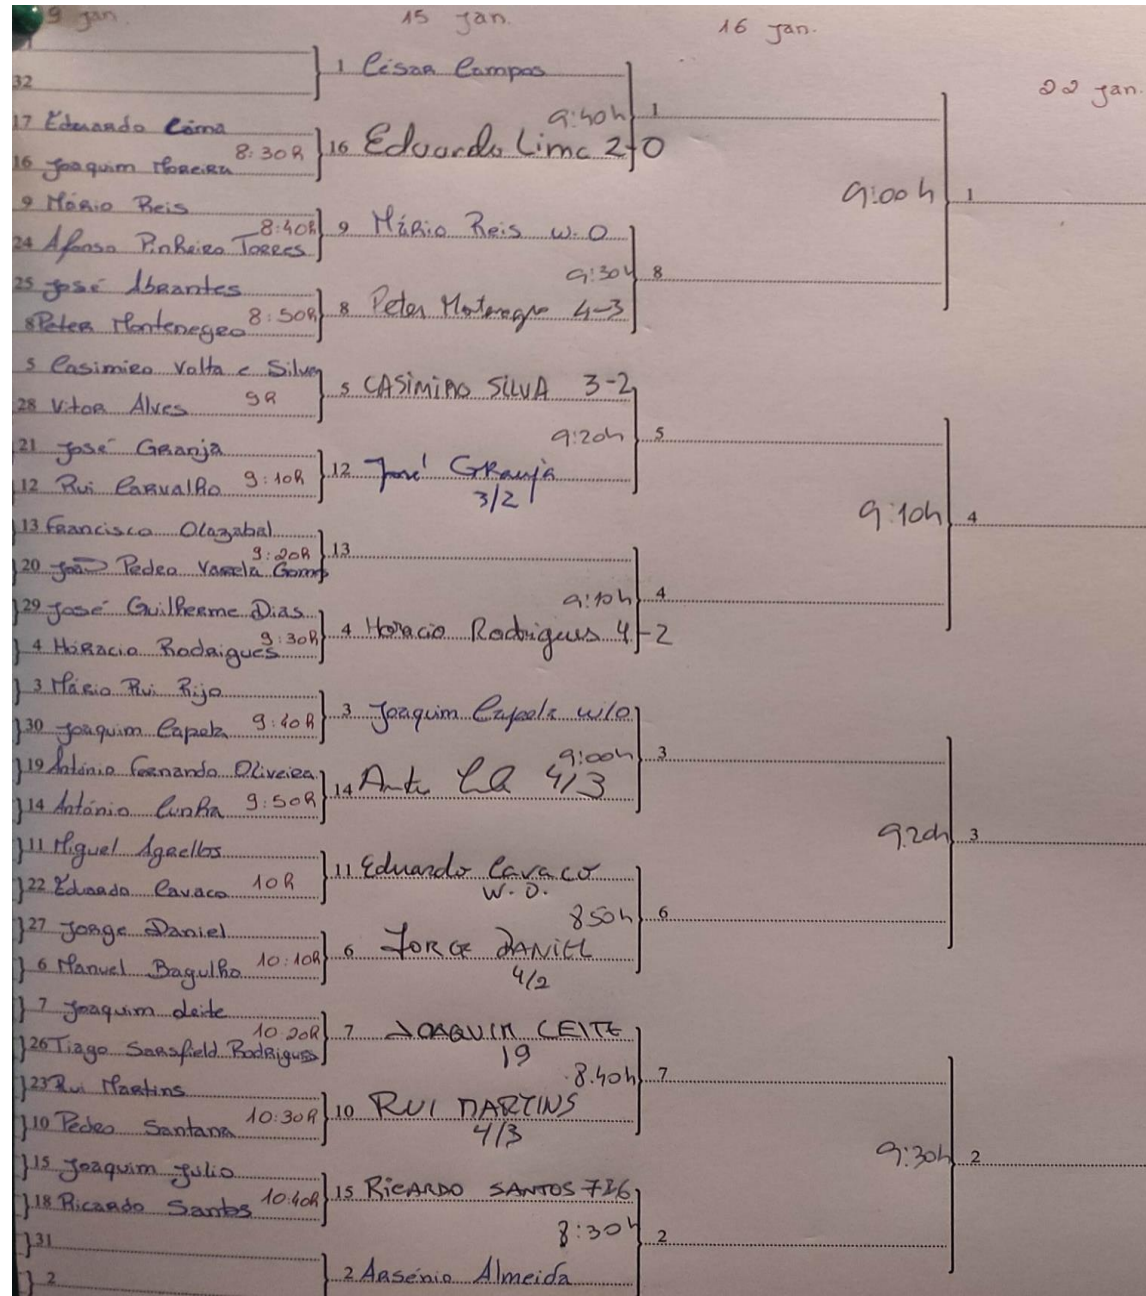 9 Jan.
15 Jan.
16 Jan.
22 Jan.
32
17 Eduardo Lima
8:30h
16 Joaquim Moreira
9 Mário Reis
8:40h
24 Afonso Pinheiro Torres
25 José Abrantes
8 Peter Montenegro 8:50h
5 Casimiro Valta e Silva
28 Vitor Alves 9h
21 José Granja
12 Rui Carvalho 9:10h
13 Francisco Olazabal
9:20h
20 João Pedro Varela Gomes
29 José Guilherme Dias
4 Horácio Rodrigues 9:30h
3 Mário Rui Rijo
30 Joaquim Capela 9:40h
19 António Fernando Oliveira
14 António Cunha 9:50h
11 Miguel Agrellos
22 Eduardo Cavaco 10h
27 Jorge Daniel
6 Manuel Bagulho 10:10h
7 Joaquim Leite
10:20h
26 Tiago Sarsfield Rodrigues
23 Rui Martins
10 Pedro Santana 10:30h
15 Joaquim Julio
18 Ricardo Santos 10:40h
31
2
1 César Campos
9:40h
16 Eduardo Lima 2-0
9 Mário Reis w.O
9:30h
8 Peter Montenegro 4-3
5 CASIMIRO SILVA 3-2
9:20h
12 José Granja
3/2
13
9:10h
4 Horacio Rodrigues 4-2
3 Joaquim Capela w/o
9:00h
14 4/3
11 Eduardo Cavaco
W.O.
850h
6 JORGE DANIEL
4/2
7 JOAQUIM LEITE
19
8.40h
10 RUI MARTINS
4/3
15 RICARDO SANTOS
8:30h
2 Arsénio Almeida
1
9:00h
8
5
9:10h
4
3
9.20h
6
7
9:30h
2
1
4
3
2